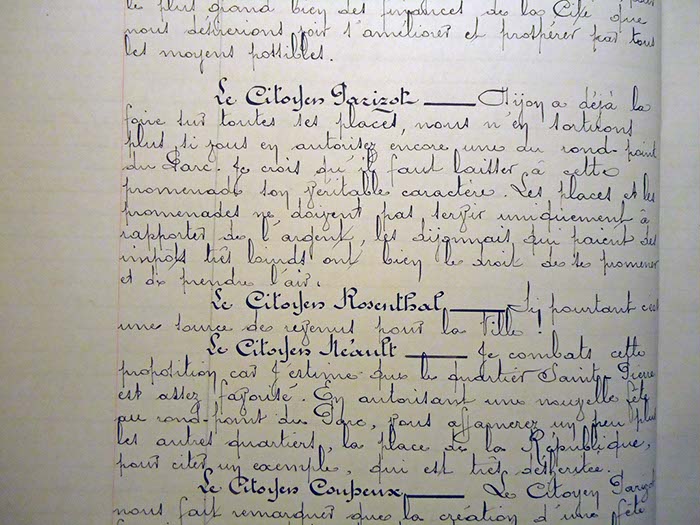 le plus grand bien des finances de la Cité que
nous désirerions voir s'améliorer et prospérer par tous
les moyens possibles.
Le Citoyen Parizot — Dijon a déjà la
foire sur toutes ses places, nous n'en sortirons
plus si vous en autorisez encore une au rond-point
du Parc. Je crois qu'il faut laisser à cette
promenade son véritable caractère. Les places et les
promenades ne doivent pas servir uniquement à
rapporter de l'argent, les dijonnais qui paient des
impôts très lourds ont bien le droit de se promener
et de prendre l'air.
Le Citoyen Rosenthal — pourtant c'est
une source de revenus pour la Ville !
Le Citoyen Néault — Je combats cette
proposition car j'estime que le quartier Saint-Pierre
est assez favorisé. En autorisant une nouvelle fête
au rond-point du Parc, vous affamerez un peu plus
les autres quartiers, la place de la République,
pour citer un exemple, qui est très desservie.
Le Citoyen Coupeux — Le Citoyen Parizot
nous fait remarquer que la création d'une fête